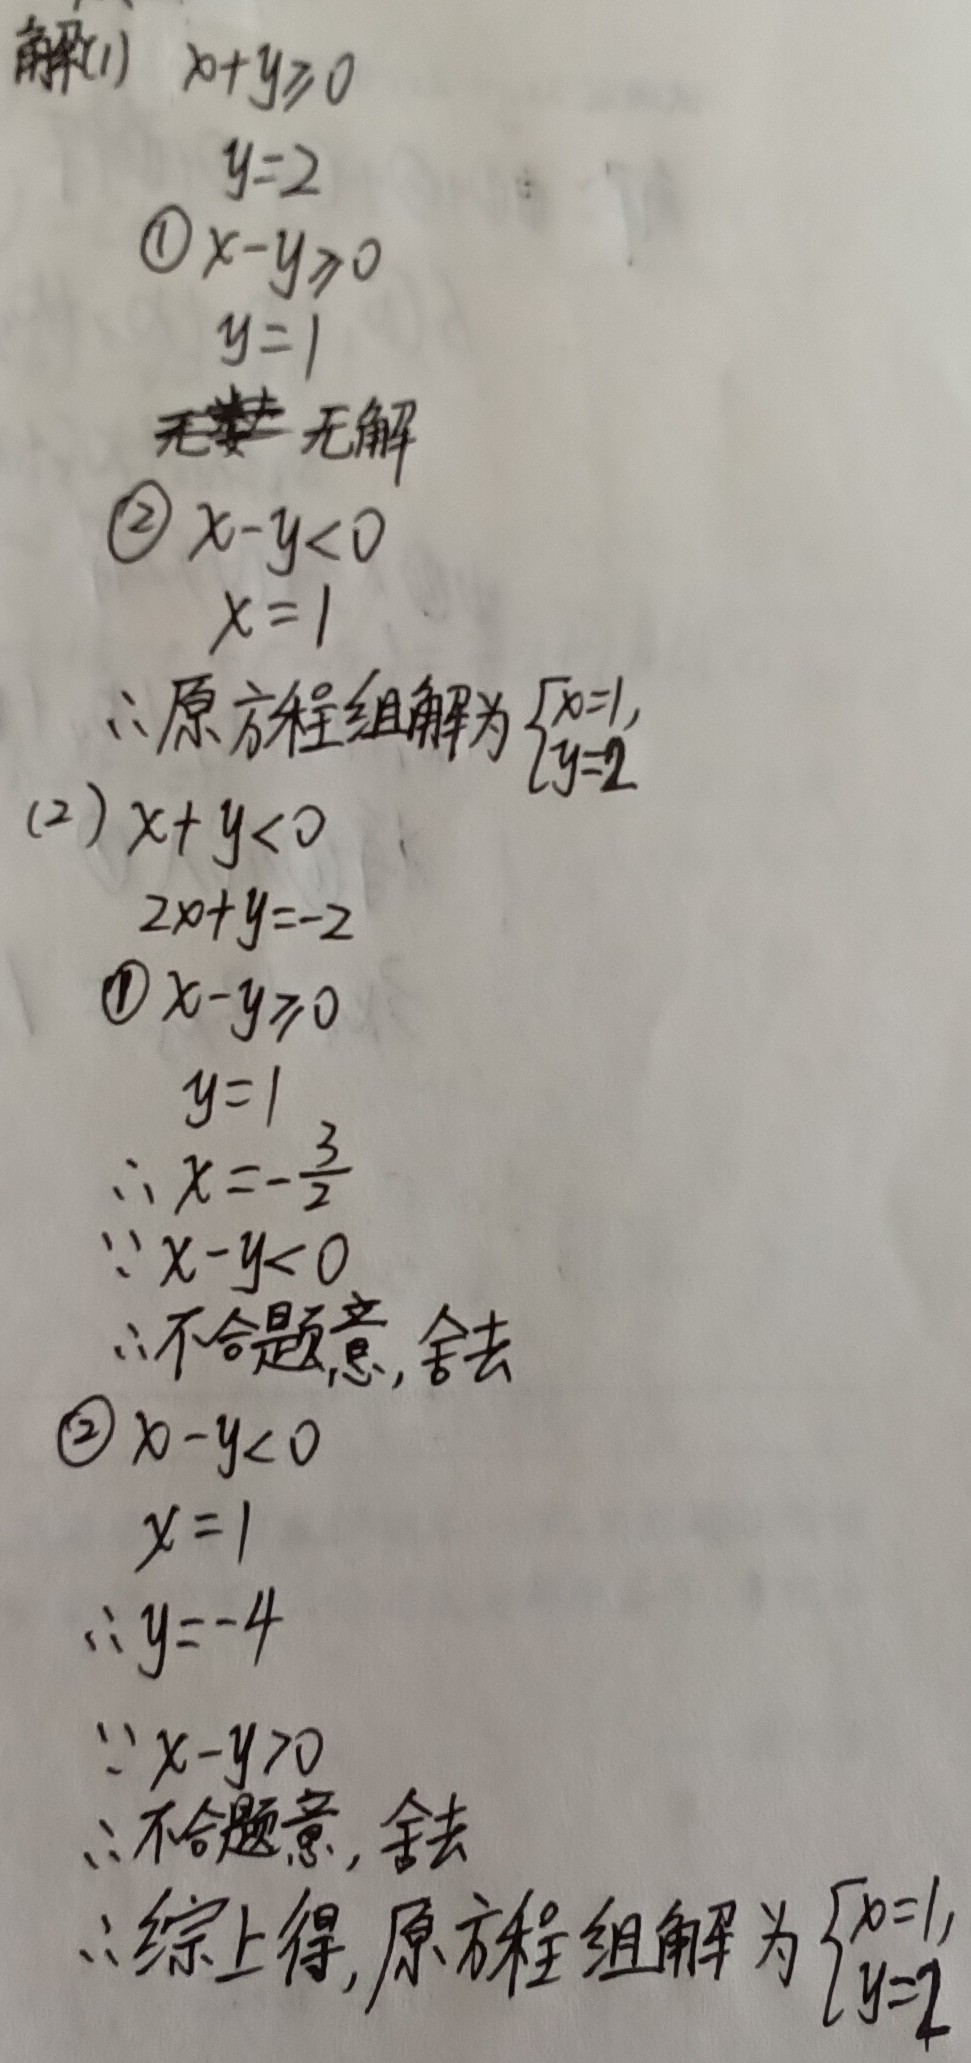 解(1) x+y≥0
y=2
① x-y≥0
y=1
无解
② x-y<0
x=1
∴原方程组解为{x=1,
y=2
(2) x+y<0
2x+y=-2
① x-y≥0
y=1
∴ x=-3/2
∵ x-y<0
∴不合题意,舍去
② x-y<0
x=1
∴ y=-4
∵ x-y>0
∴不合题意,舍去
∴综上得,原方程组解为{x=1,
y=2